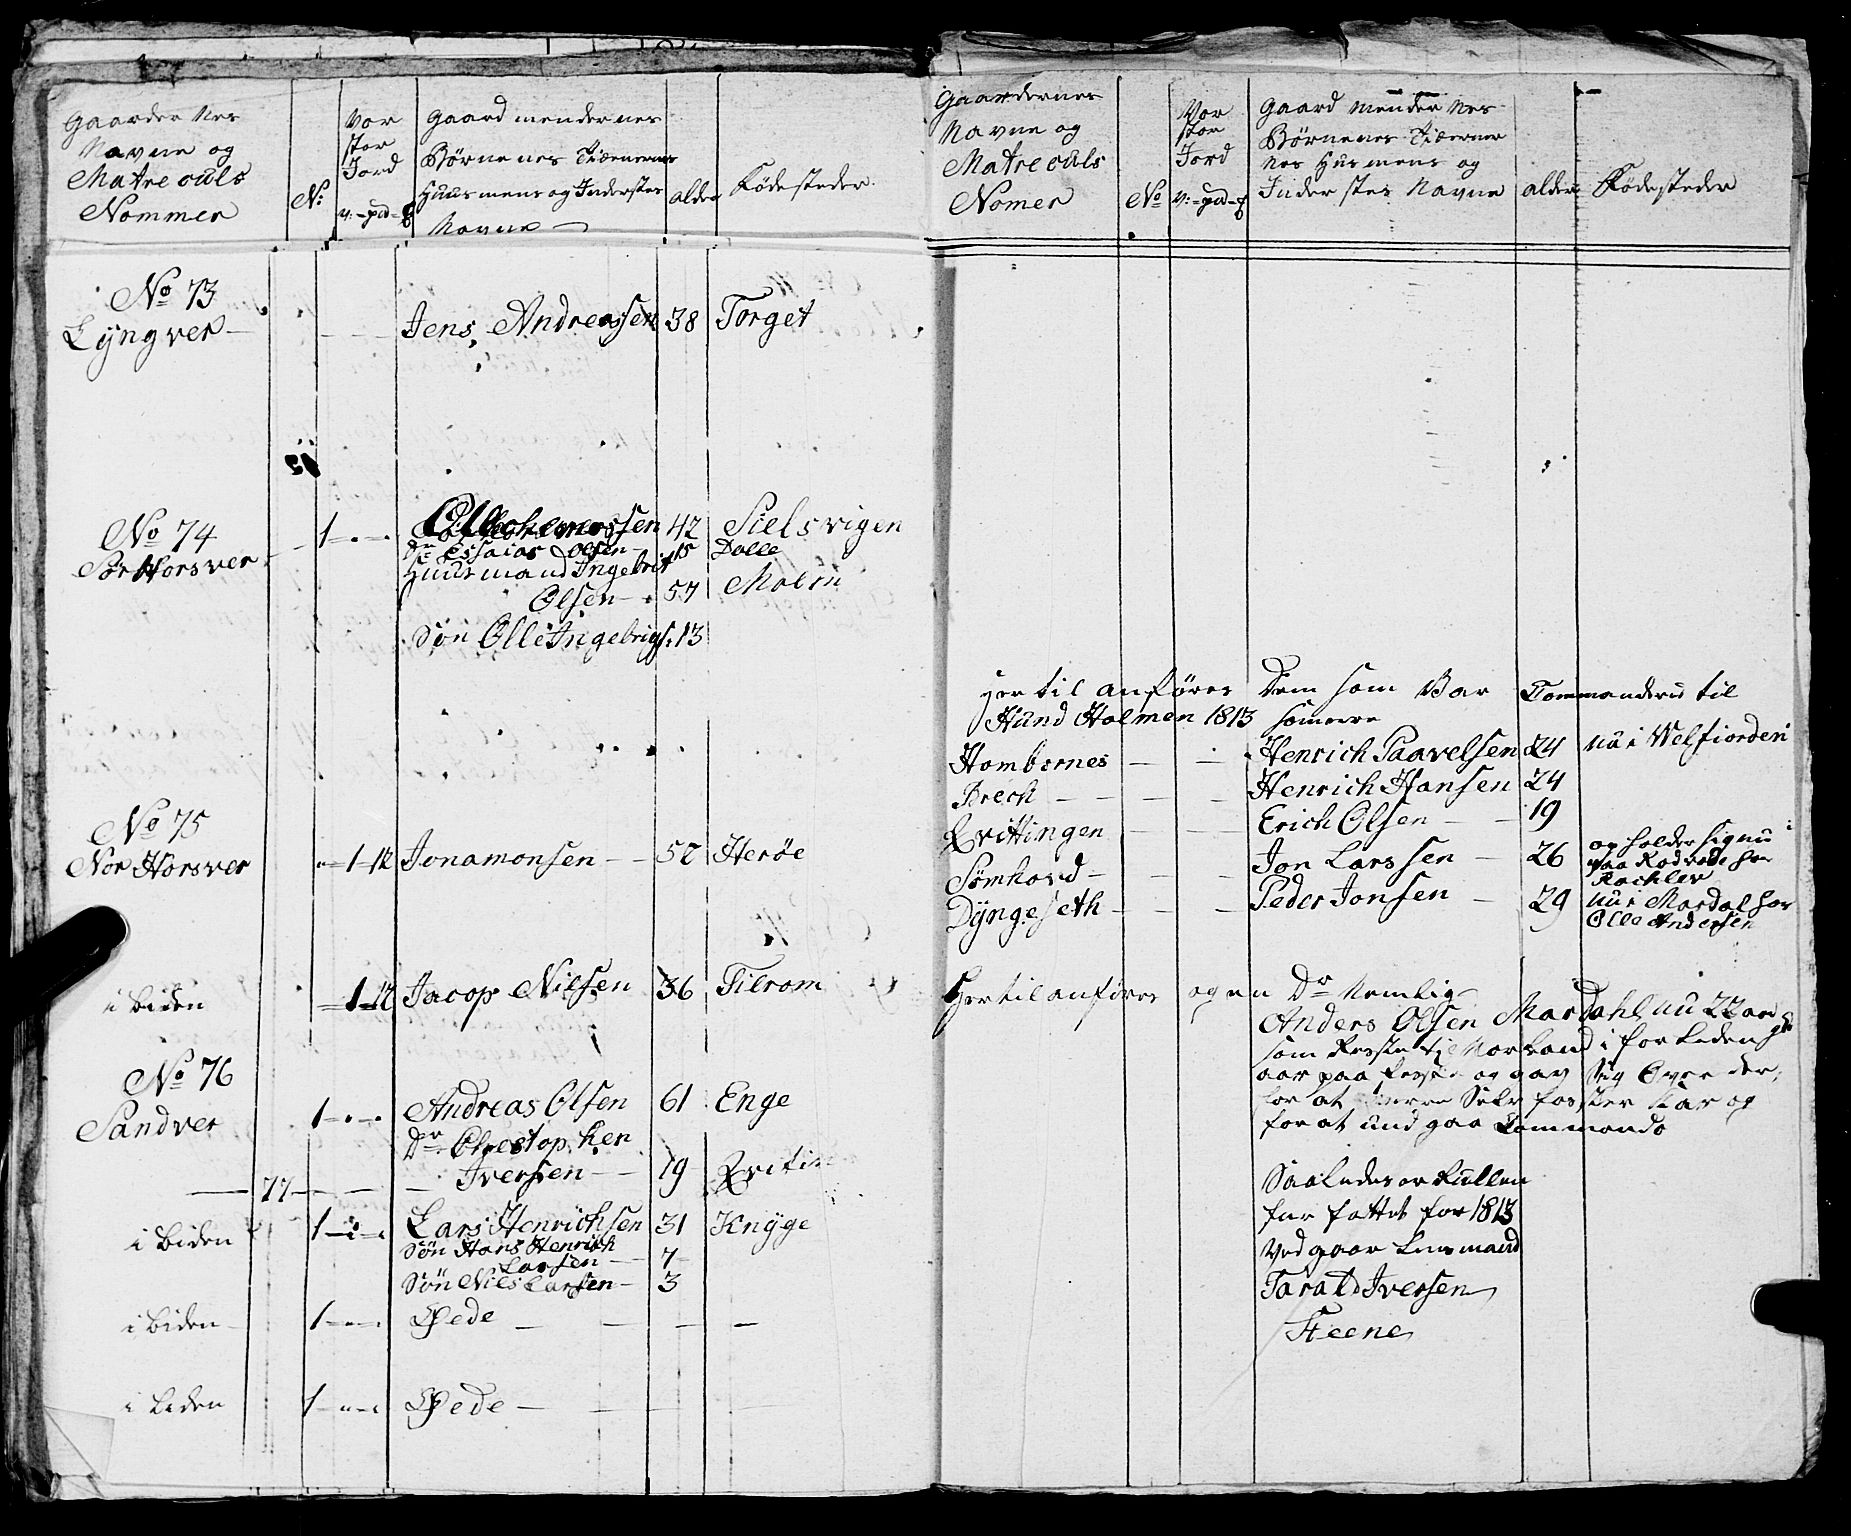 Gaarder Nes
Navne og
Matreculs
Nommer
N:
Vor
stor
Jord
v:-pd-
Gaard mendernes
Børnenes Tiænernes
Huusmens og Inderster
Navne
alder
Fødesteder.
No 73
Lyngver
Jens Andreassen 38 Torget
No 74
Sør Horsver
1
42 Sielsvigen
Do Essaias Olsen 15 Dalle
Huusmand Ingebrit
Olsen 57 Malm
Søn Olle Ingebrigs. 13
No 75
Nor Horsver
1-12 Jonamonsen 52 Herøe
i biden
1-12 Jacop Nilsen 36 Tilrom
No 76
Sandver
1 Andreas Olsen 61 Enge
Dr. Chrestophen
Iversen 19
77
i biden
1 Lars Henrichsen 31 Knyge
Søn Hans Henrich
Larsen 7
Søn Nils Larsen 3
i biden 1 Øede
i biden 1 Øede
Gaardernes
Navne og
Matreculs
Nomer
No
Vor
stor
Jord
v:-pd-
Gaard mender nes
Børnenes Tiæerner
nes Husmens og
Inder stes Navne
alder
Fødesteder
Her til anføres Dem som Var Commanderd til
Hund Holmen 1813 somerre
Hombornes Henrich Paavelsen 24 nu i Welfiorden
Breck Henrich Hansen 24
Qvittingen Erich Olsen 19
Sømhovd Jon Larssen 26 opholder sig nu i
paa Rodøde hos
Rachlev
Dyngeseth Peder Jonsen 29 nu i Mardal hos
Olle Andersen
Her til anføres og en Do Nemlig
Anders Olsen Mardahl nu 22 aar
som Resste til Norland i forleden
aar paa og gav Sig Over der,
for at Selv foster kar og
for at und gaa Commando
Saaledes er Rullen
for fattet for 1813
Vedgaar Lensmand
Tarald Iversen
Steene